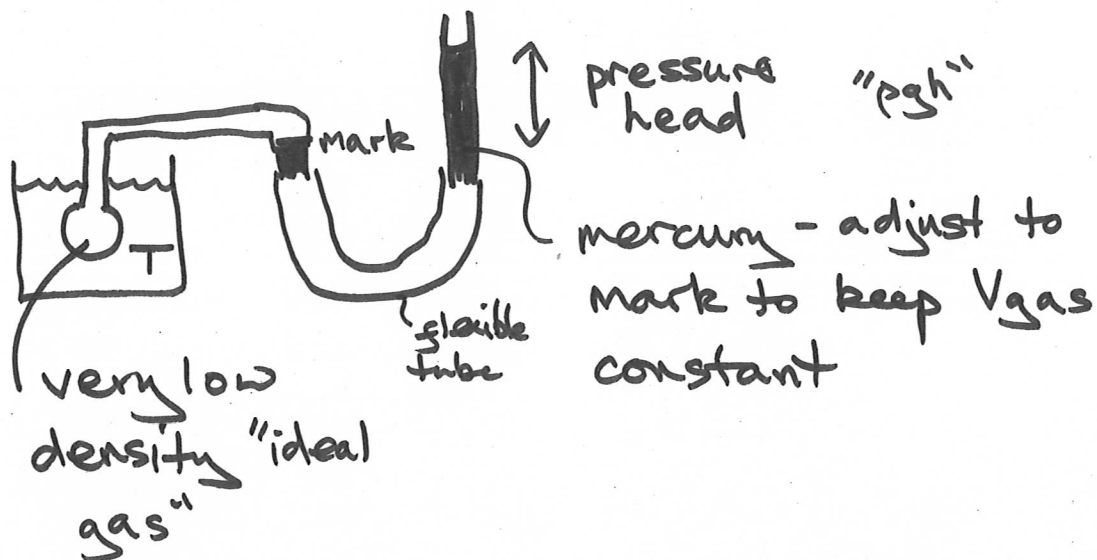 pressure
head
"ρgh"
mark
T
mercury - adjust to
mark to keep Vgas
constant
flexible
tube
very low
density "ideal
gas"